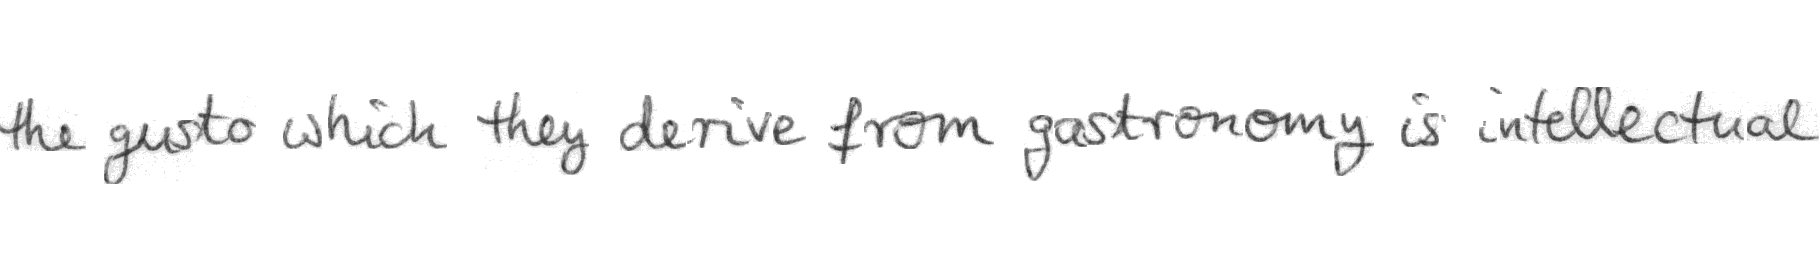 the gusto which they derive from gastronomy is intellectual